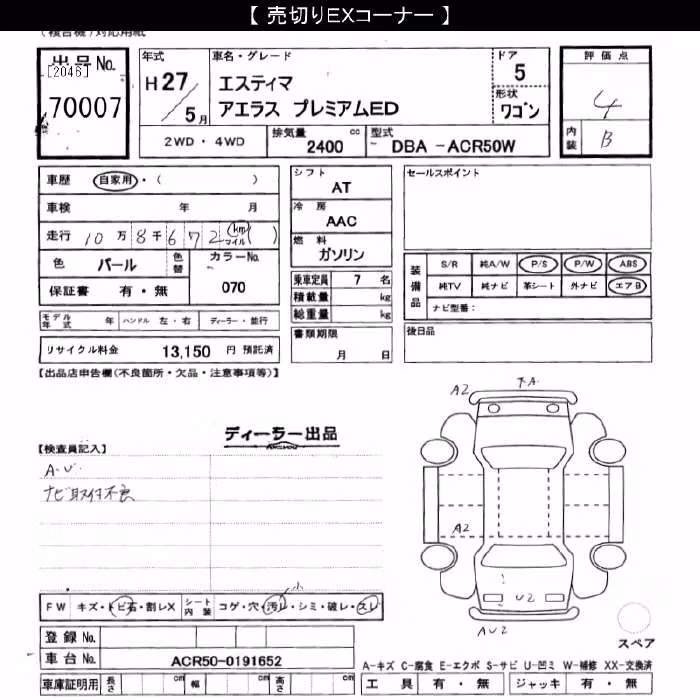 【 売切りEXコーナー 】
(複合機)対応用紙
出品No.
[2046]
70007
年式
H27/5月
車名・グレード
エスティマ
アエラス プレミアムED
ドア
5
形状
ワゴン
評価点
4
内装
B
2WD・4WD
排気量 2400 cc
型式 DBA -ACR50W
車歴 自家用・( )
車検 年 月
走行 10万8千672 km マイル ( )
色 パール 色替
カラーNo. 070
保証書 有・無
シフト AT
冷房 AAC
燃料 ガソリン
乗車定員 7 名
積載量 kg
総重量 kg
セールスポイント
装備品
S/R 純A/W P/S P/W ABS
純TV 純ナビ 革シート 外ナビ エアB
ナビ型番:
モデル年式 年 ハンドル 左・右 ディーラー・並行
リサイクル料金 13,150 円 預託済
書類期限
月 日
後日品
【出品店申告欄(不良箇所・欠品・注意事項等)】
ディーラー出品
【検査員記入】
A・U
ナビ取付不良
A2
下A
A2
U2
AU2
FW キズ・トビ石・割レX
シート内装 コゲ・穴・汚レ・シミ・破レ・スレ
小
登録 No.
車台 No. ACR50-0191652
車庫証明用 長さ cm 幅 cm 高さ cm
スペア
A-キズ C-腐食 E-エクボ S-サビ U-凹ミ W-補修 XX-交換済
工具 有・無 ジャッキ 有・無